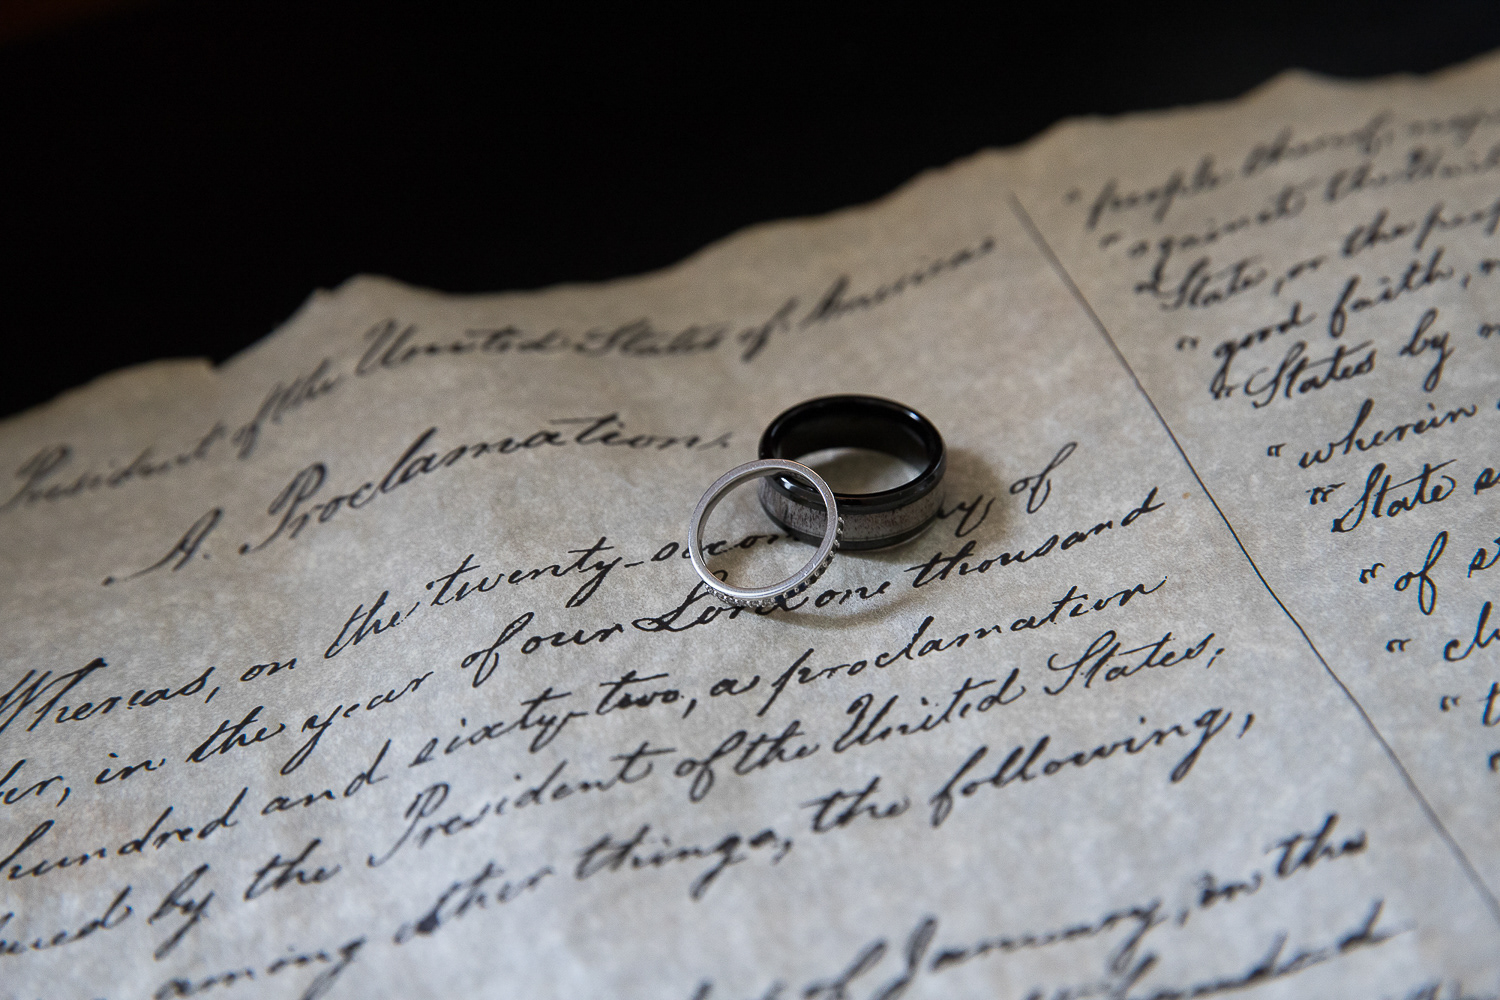 President of the United States of America:
A Proclamation.
Whereas, on the twenty-secon y of
er, in the year of our Lord one thousand
hundred and sixty-two, a proclamation
ued by the President of the United States,
among other things, the following,
of January, in the
hundred
"people thereof,
"against the Unit
"State, or the peop
"good faith,
"States by
"wherein
"State
"of
"
"